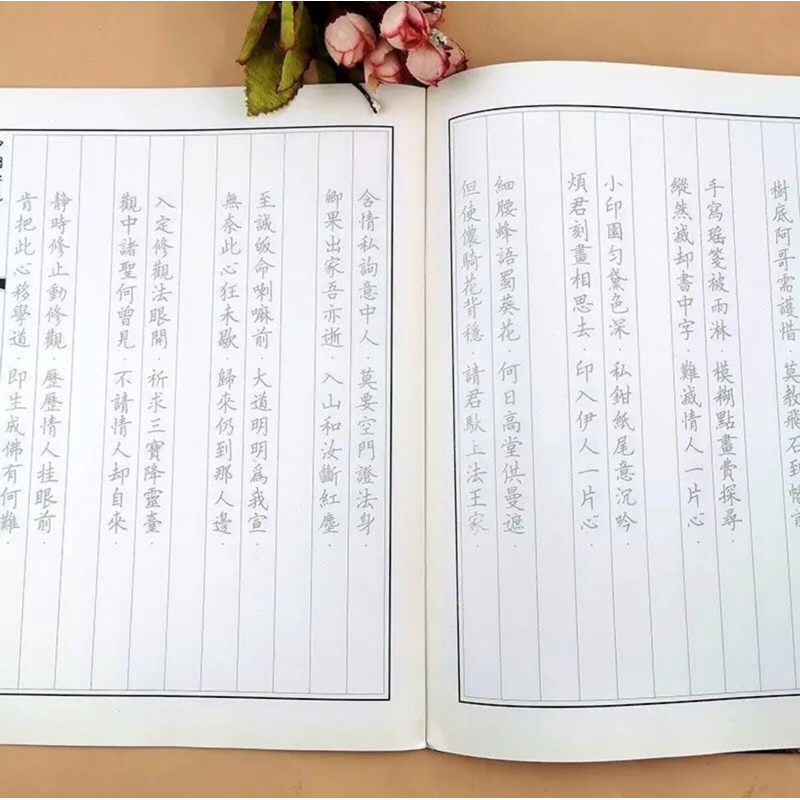 樹底阿哥需護惜．莫教飛石到帳前
手寫瑤箋被雨淋．模糊點畫費探尋．
縱然滅却書中字．難滅情人一片心．
小印圓勻黛色深．私鉗紙尾意沉吟．
煩君刻畫相思去．印入伊人一片心．
細腰蜂語蜀葵花．何日高堂供曼遮．
但使儂騎花背穩．請君馱上法王家．
含情私詢意中人．莫要空門證法身．
卿果出家吾亦逝．入山和汝斷紅塵．
至誠皈命喇嘛前．大道明明爲我宣．
無奈此心狂未歇．歸來仍到那人邊．
入定修觀法眼開．祈求三寶降靈臺．
觀中諸聖何曾見．不請情人却自來．
靜時修止動修觀．歷歷情人挂眼前．
肯把此心移學道．即生成佛有何難．